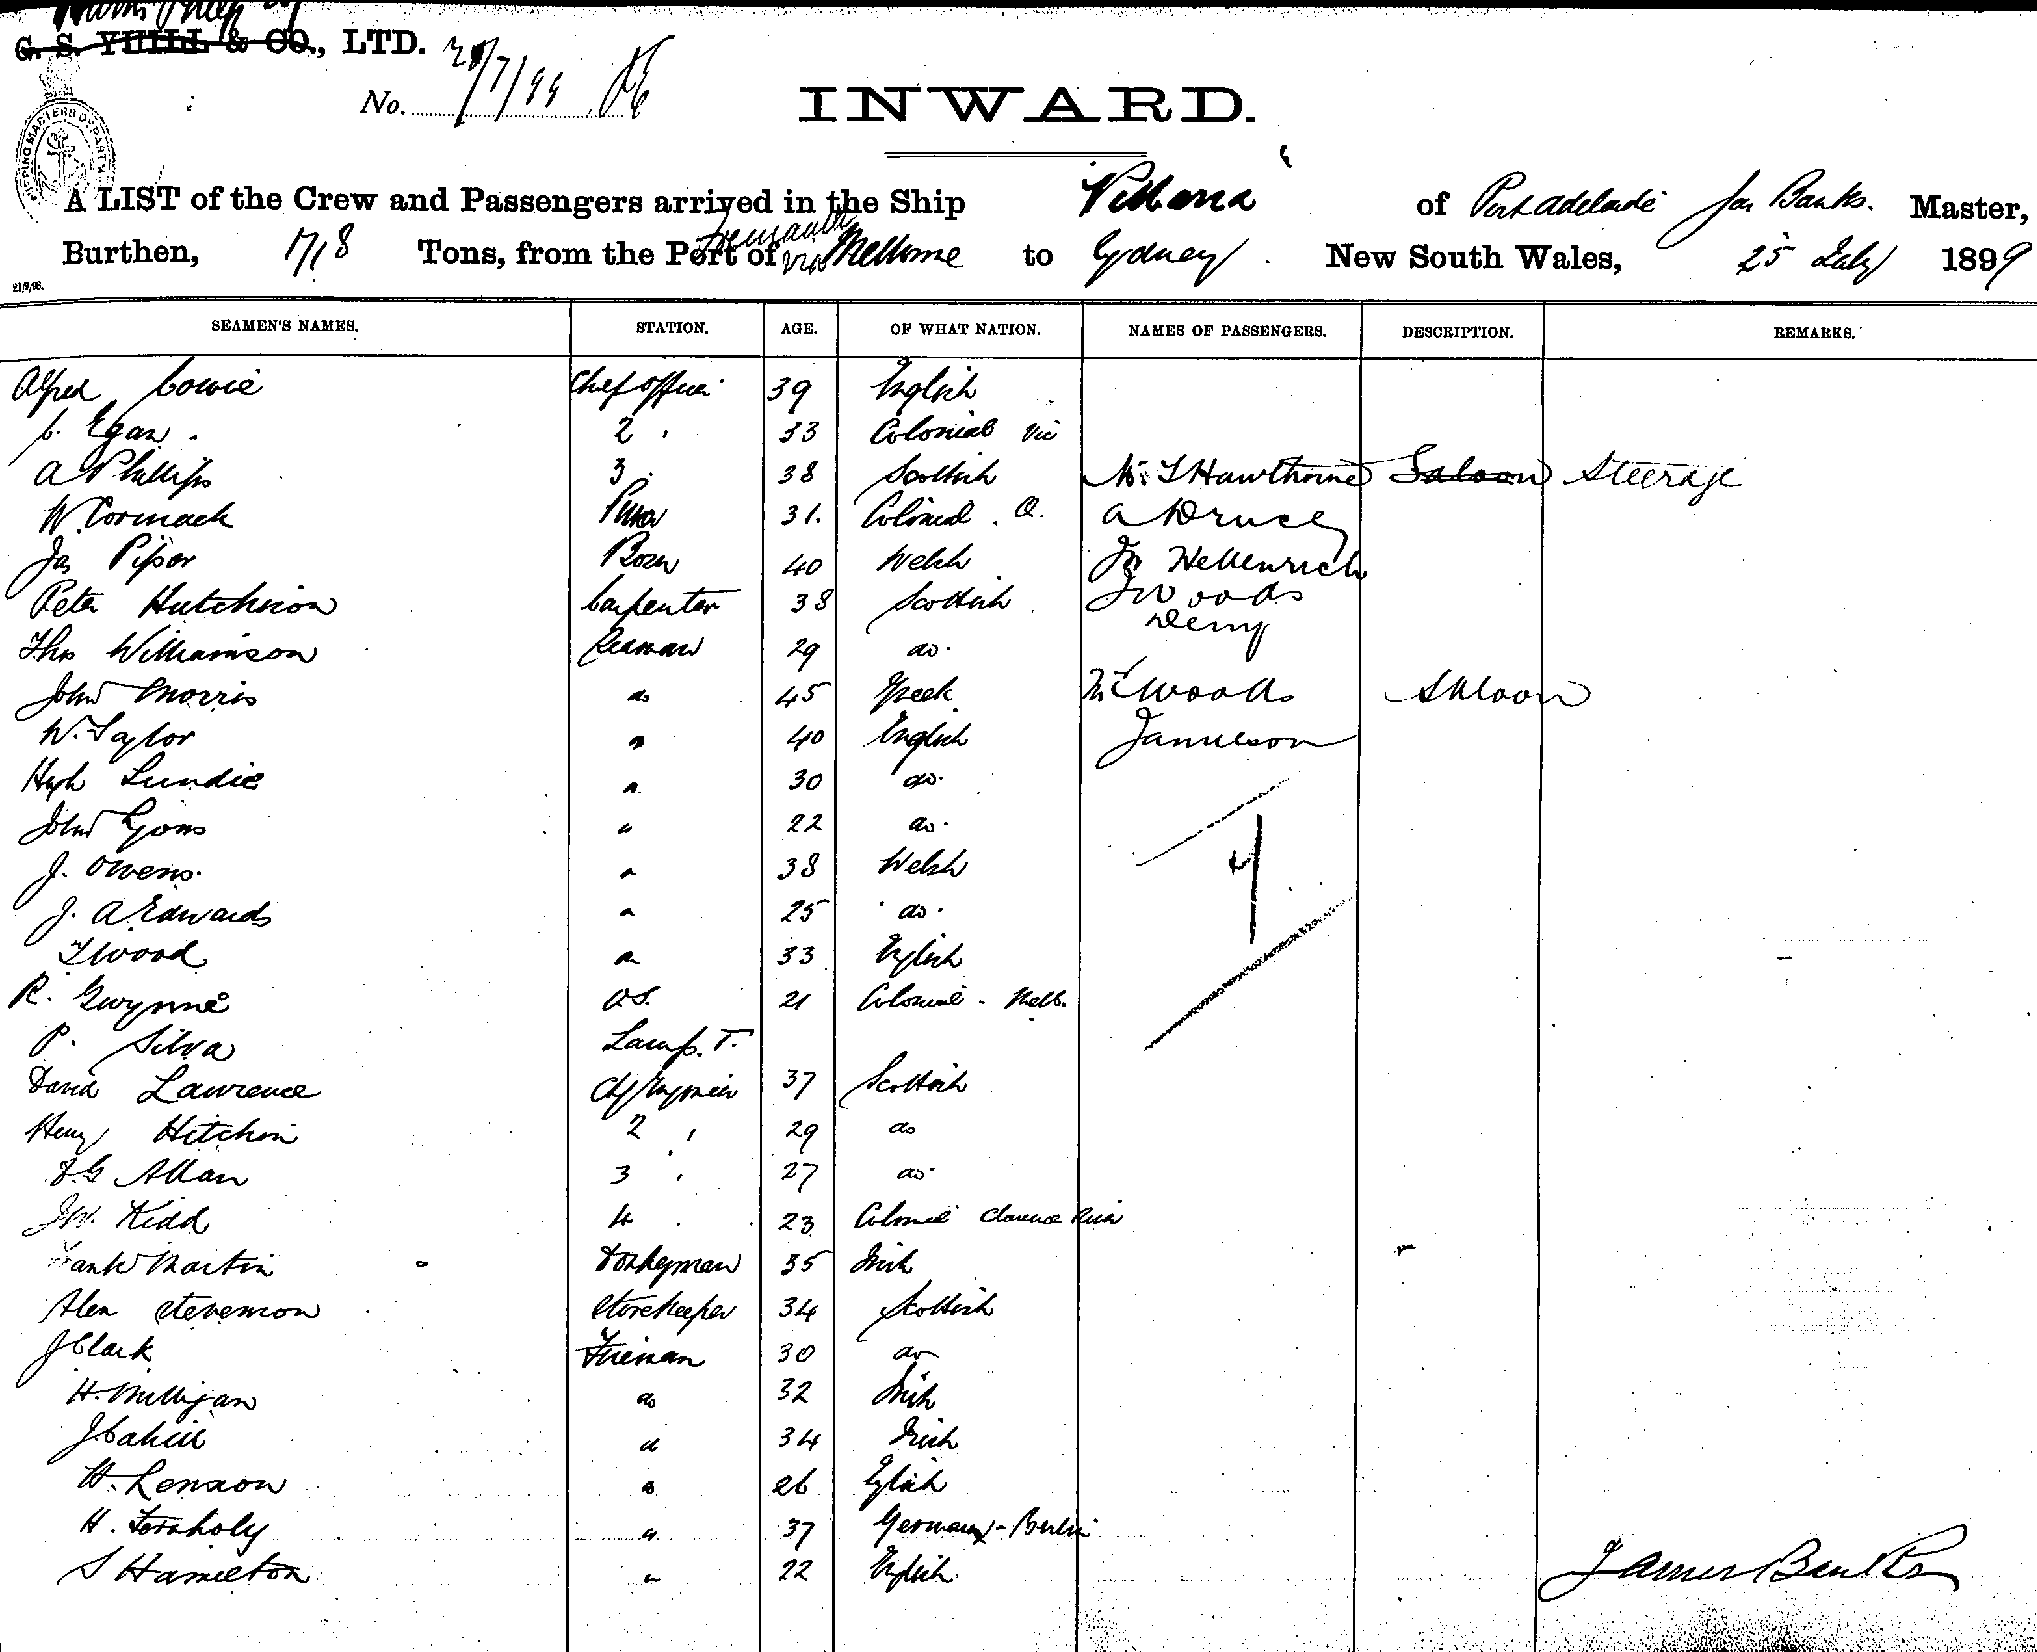 G. S. YUILL & CO., LTD.
No. 28/7/99
INWARD.
SHIPPING MASTERS DEPARTM
A LIST of the Crew and Passengers arrived in the Ship of Port adelaide Jas Banks. Master,
Fremantle
Burthen, 1718 Tons, from the Port of via Melborne to Sydney. New South Wales, 25 July 1899
21/9/98.
SEAMEN'S NAMES. STATION. AGE. OF WHAT NATION. NAMES OF PASSENGERS. DESCRIPTION. REMARKS.
Alfred Cowie Chief officer 39 English
C. Egan. 2 " 33 Colonial Vic
A Phillips 3 " 38 Scottish Mr T Hawthorne Saloon Steerage
W. Cormack Purser 31. Colonial. Q. A Druce
Jas Piper Bosn 40 Welsh
Peter Hutchison Carpenter 38 Scottish J Woods
Thos Williamson Seaman 29 do.
John Morris do 45 Greek Mr Woods Saloon
W. Taylor " 40 English Jamieson
Hugh Lundie " 30 do.
John Lyons " 22 do.
J. Owens. " 38 Welsh
J. A Edwards " 25 do.
T Wood " 33 English
R. Gwynne OS. 21 Colonial - Melb.
P. Silva Lamp. T.
David Lawrence Chf Engineer 37 Scottish
Henry Hitchin 2 " 29 do
F. G Allan 3 " 27 do.
J W. Kidd 4 " 23 Colonial Clarence River
Frank Martin Donkeyman 35 Irish
Alex Stevenson Storekeeper 34 Scottish
J Clark Fireman 30 do
H. Milligan do 32 Irish
J Cahill " 34 Irish
H. Lenson " 26 English
H. " 37 Germany - Berlin
S Hamilton " 22 English.
James Banks